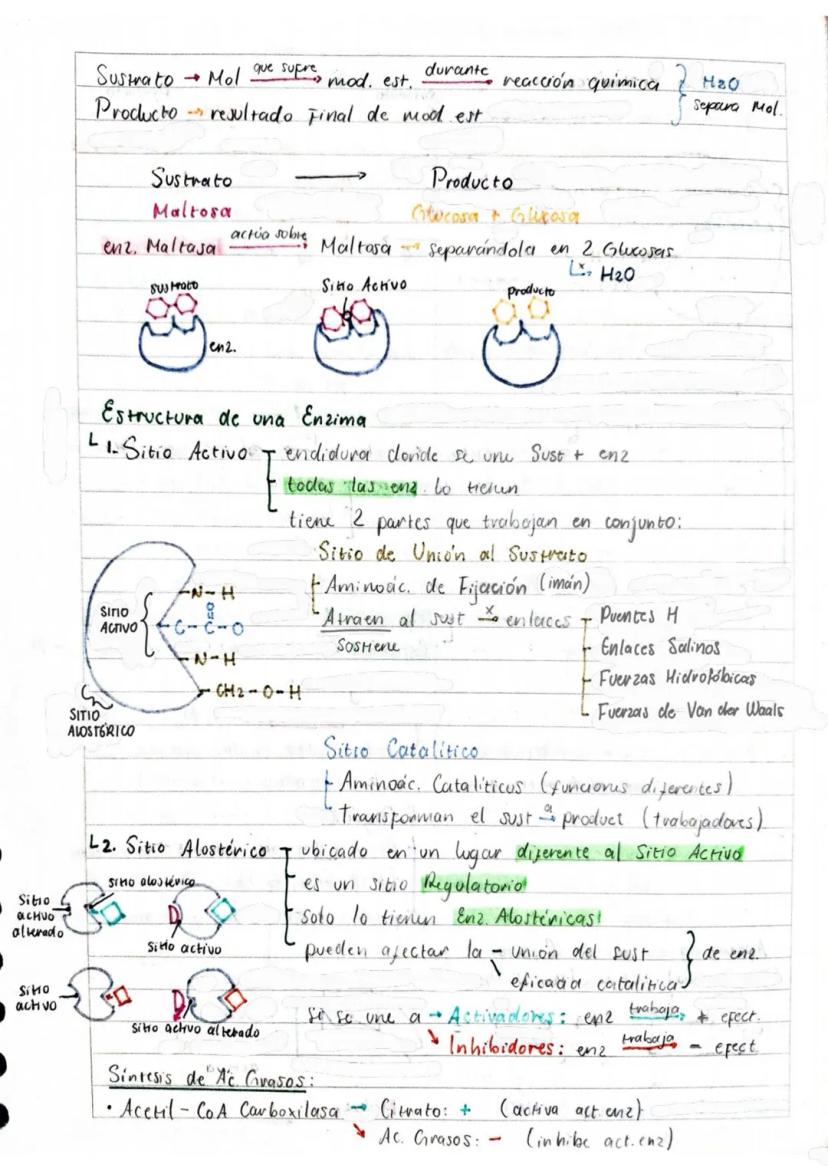 Sustrato → Mol que sufre → mod. est. durante → reacción química } H2O
Producto → resultado Final de mod est separa Mol.
Sustrato → Producto
Maltosa Glucosa + Glucosa
enz. Maltasa actúa sobre → Maltosa → separándola en 2 Glucosas
x H2O
sustrato Sitio Activo producto
enz.
Estructura de una Enzima
1. Sitio Activo endidura donde se une Sust + enz
todas las enz. lo tienen
tiene 2 partes que trabajan en conjunto:
Sitio de Unión al Sustrato
Aminoác. de Fijación (imán)
Atraen al sust x→ enlaces Puentes H
Sostiene Enlaces Salinos
Fuerzas Hidrofóbicas
Fuerzas de Van der Waals
SITIO ACTIVO
-N-H
O
C-C-O
-N-H
-CH2-O-H
SITIO
ALOSTÉRICO
Sitio Catalítico
Aminoác. Catalíticos (funciones diferentes)
Transforman el sust a→ product (trabajadores)
2. Sitio Alostérico ubicado en un lugar diferente al Sitio Activo
es un sitio Regulatorio
solo lo tienen Enz. Alostéricas!
pueden afectar la - unión del sust } de enz.
eficacia catalítica
Si se une a → Activadores: enz trabaja → + efect.
Inhibidores: enz trabaja → - efect.
Sitio
activo
alterado
sitio alostérico
Sitio activo
Sitio
activo
Sitio activo alterado
Síntesis de Ac. Grasos:
• Acetil-CoA Carboxilasa → Citrato: + (activa act. enz)
Ac. Grasos: - (inhibe act. enz)